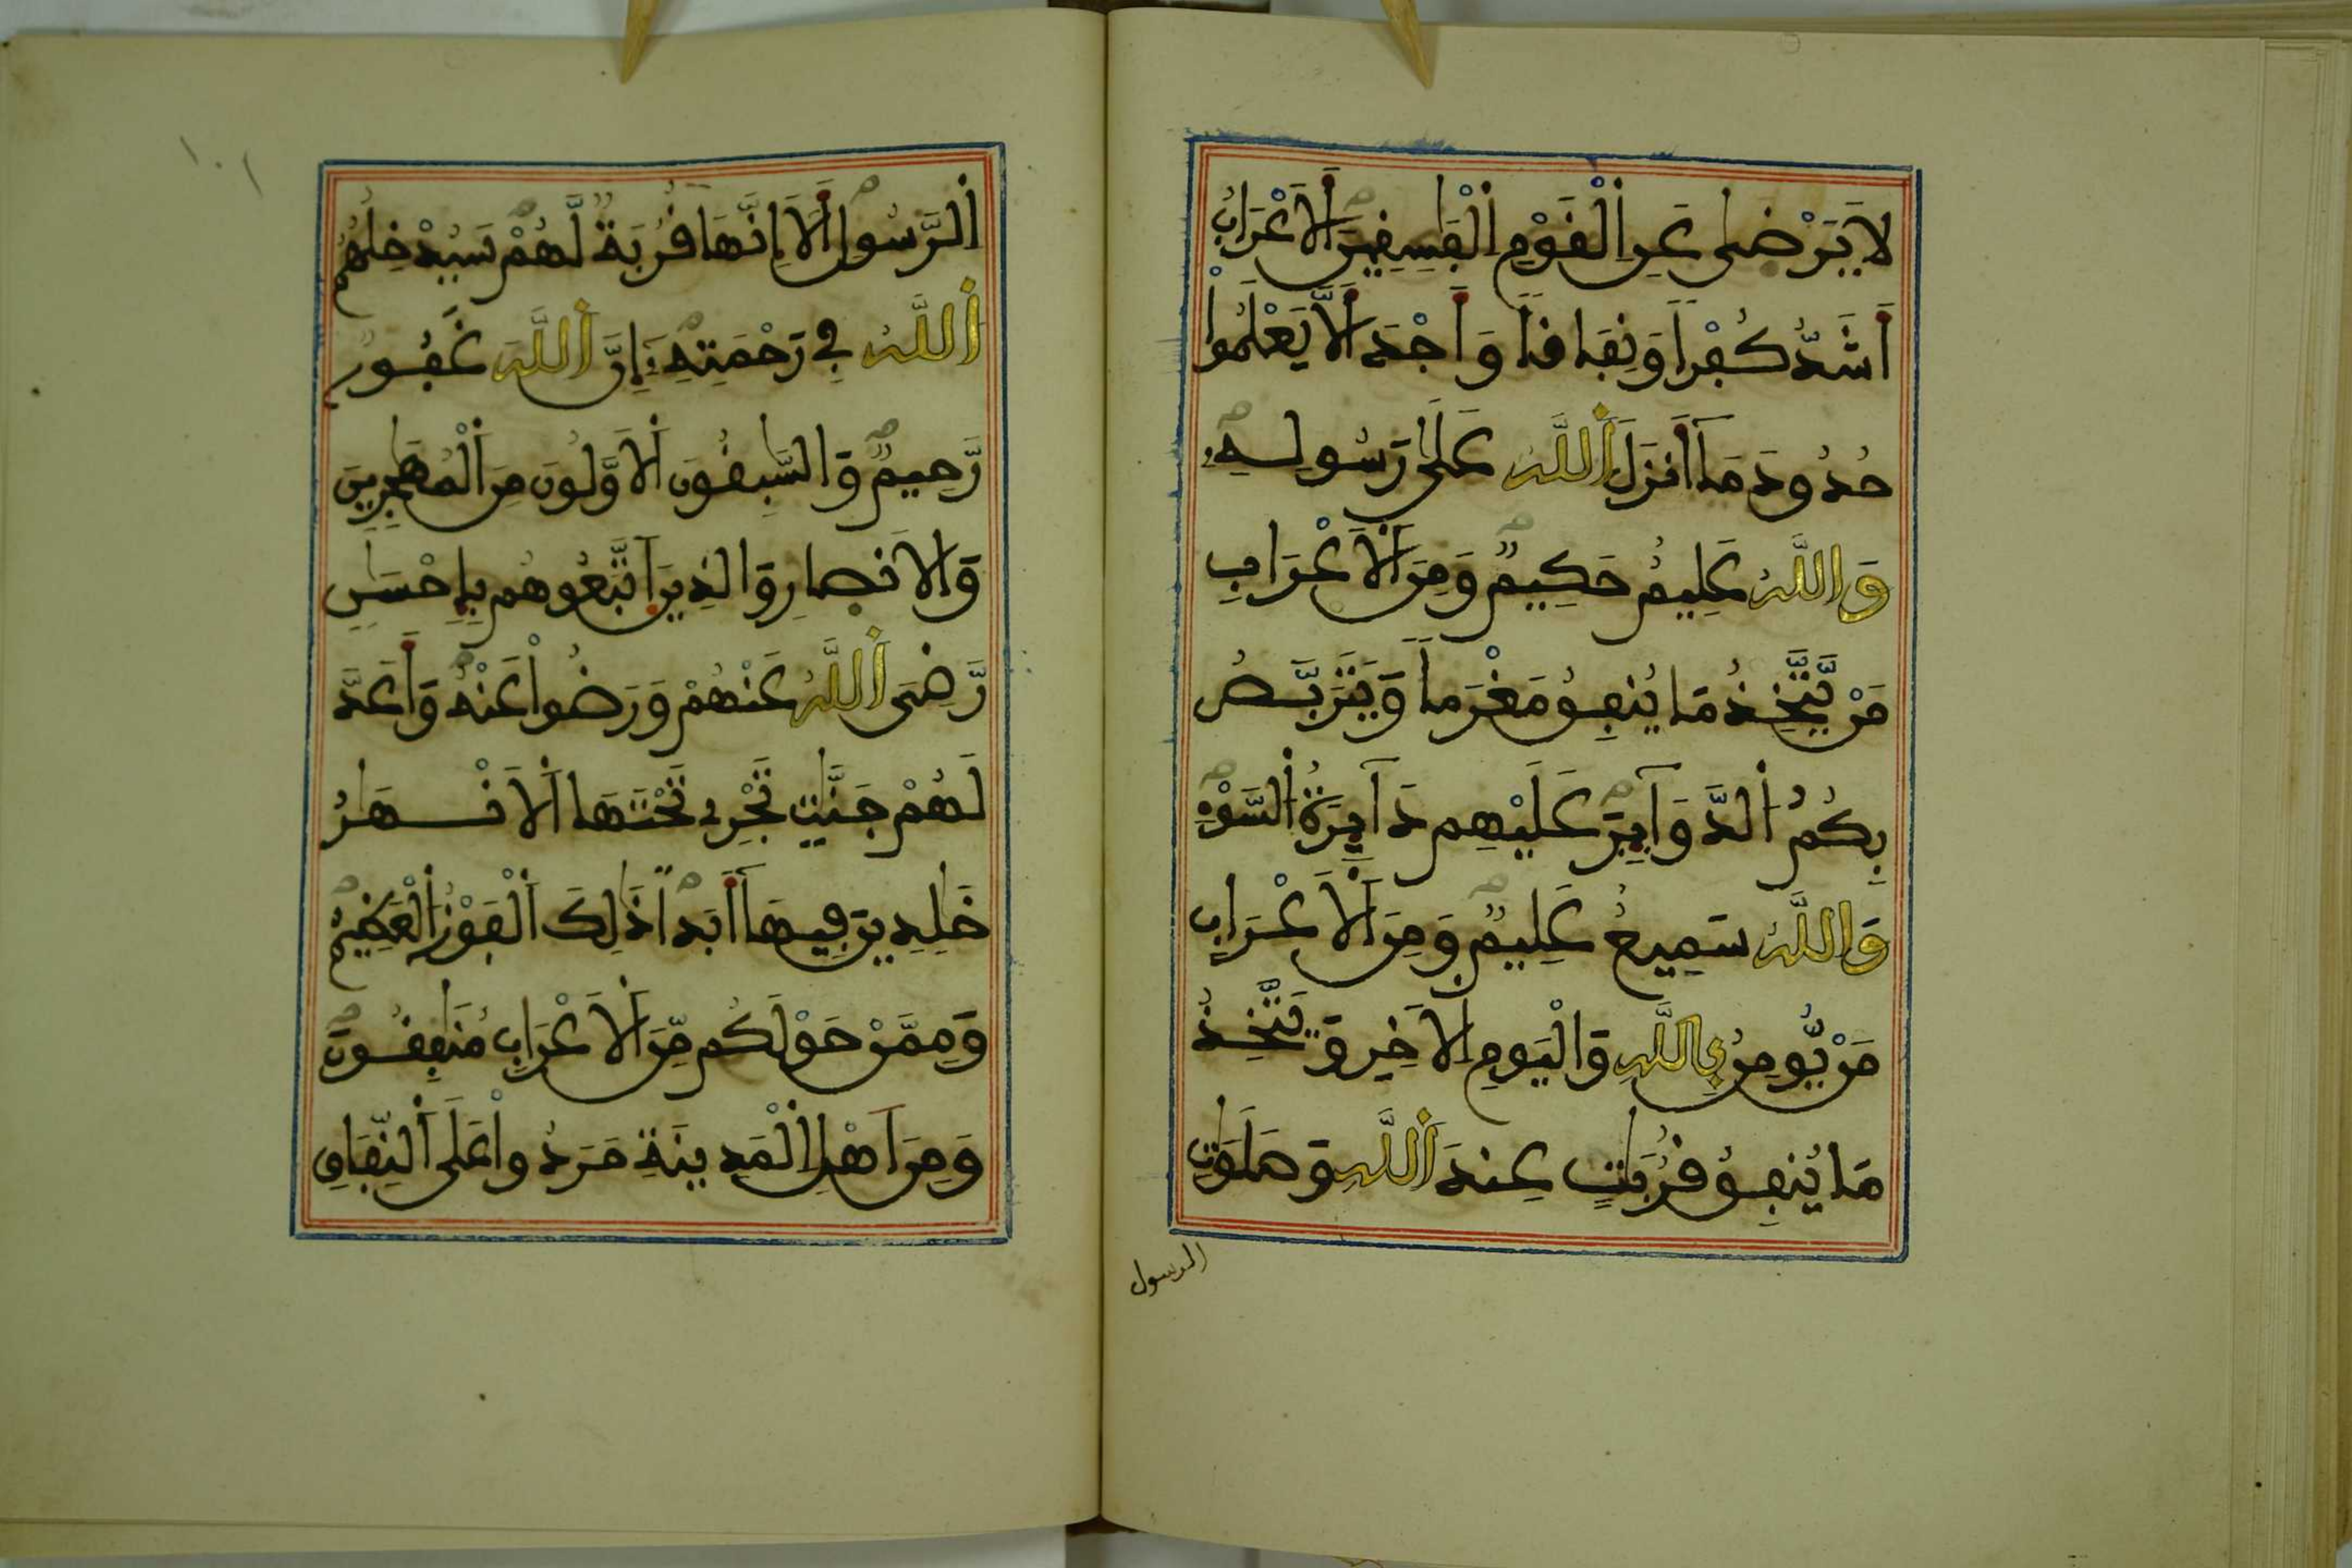 لَا يَرْضَىٰ عَنِ اِ۬لْقَوْمِ اِ۬لْفَٰسِقِينَ اَ۬لَاعْرَابُ
أَشَدُّ كُفْراً وَنِفَاقاً وَأَجْدَرُ أَلَّا يَعْلَمُواْ
حُدُودَ مَآ أَنزَلَ اَ۬للَّهُ عَلَىٰ رَسُولِهِۦ
وَاللَّهُ عَلِيمٌ حَكِيمٌ وَمِنَ اَ۬لَاعْرَابِ
مَنْ يَّتَّخِذُ مَا يُنفِقُ مَغْرَماً وَيَتَرَبَّصُ
بِكُمُ اُ۬لدَّوَآئِرَ عَلَيْهِمْ دَآئِرَةُ اُ۬لسَّوْءِ
وَاللَّهُ سَمِيعٌ عَلِيمٌ وَمِنَ اَ۬لَاعْرَابِ
مَنْ يُّومِنُ بِاللَّهِ وَالْيَوْمِ اِ۬لَاخِرِ وَيَتَّخِذُ
مَا يُنفِقُ قُرُبَٰتٍ عِندَ اَ۬للَّهِ وَصَلَوَٰتِ
الرسول
١٠١
اِ۬لرَّسُولِ أَلَا إِنَّهَا قُرُبَةٌ لَّهُمْ سَيُدْخِلُهُمُ
اُ۬للَّهُ فِے رَحْمَتِهِۦ إِنَّ اَ۬للَّهَ غَفُورٌ
رَّحِيمٌ وَالسَّٰبِقُونَ اَ۬لَاوَّلُونَ مِنَ اَ۬لْمُهَٰجِرِينَ
وَالَانصَارِ وَالذِينَ اَ۪تَّبَعُوهُم بِإِحْسَٰنٍ
رَّضِىَ اَ۬للَّهُ عَنْهُمْ وَرَضُواْ عَنْهُ وَأَعَدَّ
لَهُمْ جَنَّٰتٍ تَجْرِے تَحْتَهَا اَ۬لَانْهَٰرُ
خَٰلِدِينَ فِيهَآ أَبَداً ذَٰلِكَ اَ۬لْفَوْزُ اُ۬لْعَظِيمُ
وَمِمَّنْ حَوْلَكُم مِّنَ اَ۬لَاعْرَابِ مُنَٰفِقُونَ
وَمِنَ اَهْلِ اِ۬لْمَدِينَةِ مَرَدُواْ عَلَى اَ۬لنِّفَاقِ